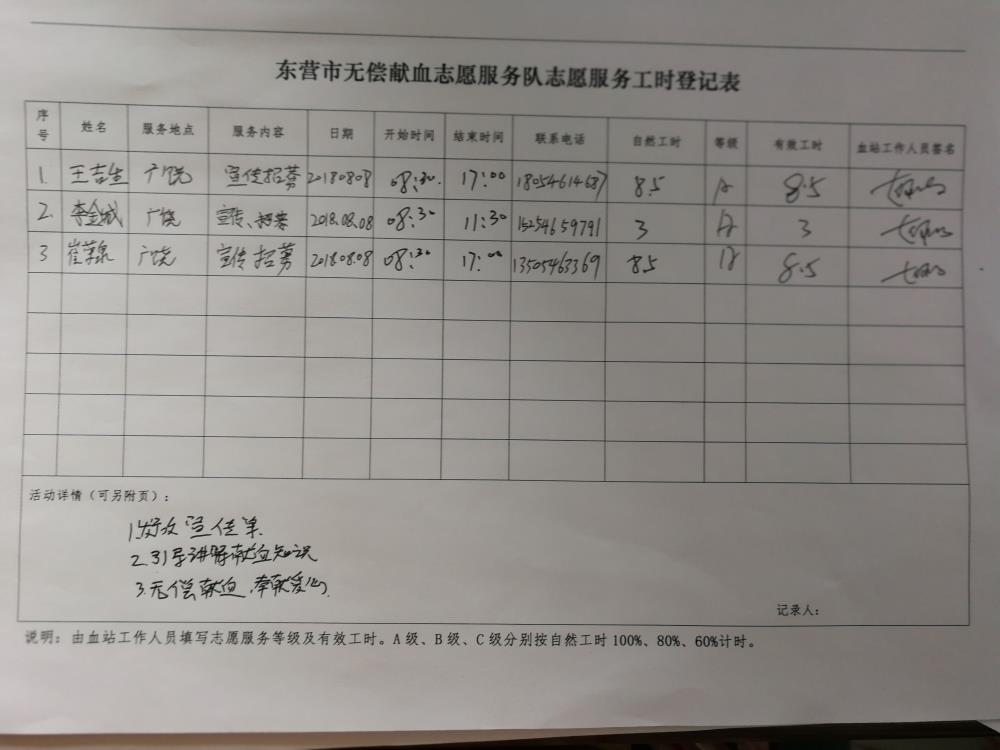 东营市无偿献血志愿服务队志愿服务工时登记表
序号 姓名 服务地点 服务内容 日期 开始时间 结束时间 联系电话 自然工时 等级 有效工时 血站工作人员签名
1. 王吉生 广饶 宣传招募 20180808 08:30. 17:00 18054614687 8.5 A 8.5
2. 李金城 广饶 宣传、招募 2018.08.08 08:30 11:30 15254659791 3 A 3
3 崔 广饶 宣传招募 2018.08.08 08:30 17:00 13505463369 8.5 A 8.5
活动详情（可另附页）：
1.发放宣传单.
2.引导讲解献血知识
3.无偿献血,奉献爱心.
记录人：
说明：由血站工作人员填写志愿服务等级及有效工时。A级、B级、C级分别按自然工时100%、80%、60%计时。